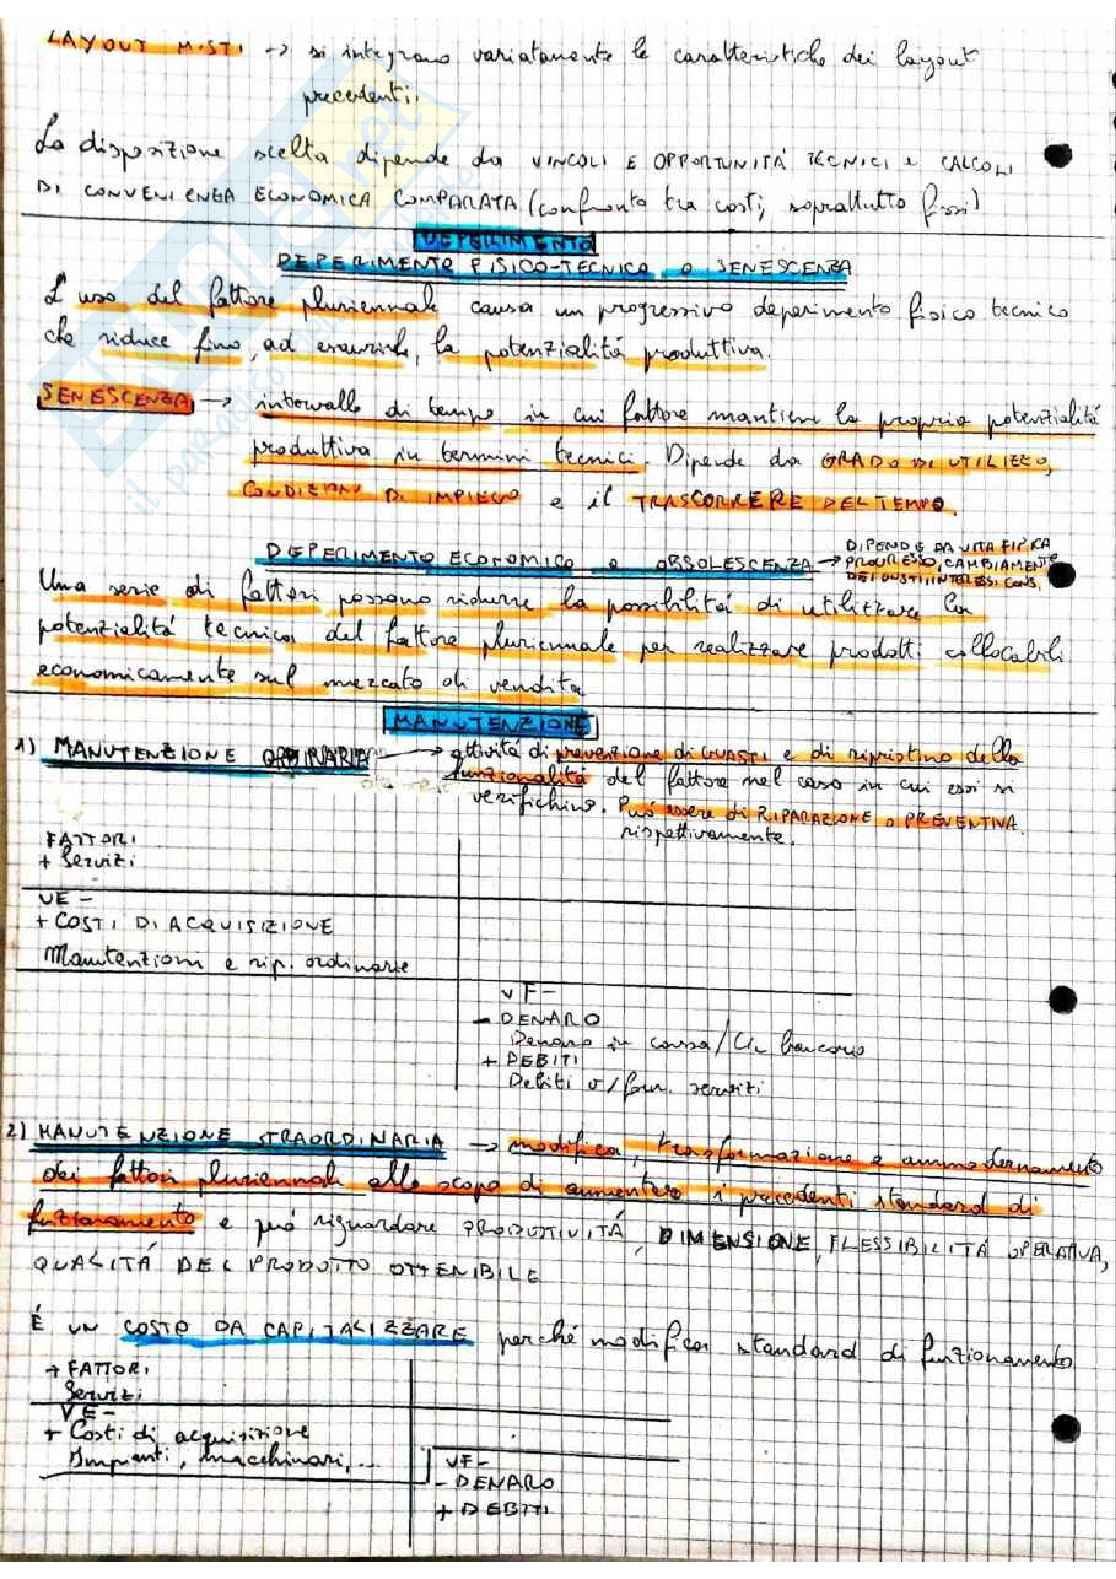 LAYOUT MISTI → si integrano variatamente le caratteristiche dei layout
precedenti.
La disposizione scelta dipende da VINCOLI E OPPORTUNITÁ TECNICI e CALCOLI
DI CONVENIENZA ECONOMICA COMPARATA (confronto tra costi, soprattutto fissi)
DEPERIMENTO
DEPERIMENTO FISICO-TECNICO o SENESCENZA
L'uso del fattore pluriennale causa un progressivo deperimento fisico tecnico
che riduce fino, ad esaurirle, la potenzialitá produttiva.
SENESCENZA → intervallo di tempo in cui fattore mantiene la propria potenzialitá
produttiva in termini tecnici. Dipende da GRADO DI UTILIZZO,
CONDIZIONI DI IMPIEGO e il TRASCORRERE DEL TEMPO.
DEPERIMENTO ECONOMICO o OBSOLESCENZA → DIPENDE DA VITA FISICA
PROGRESSO, CAMBIAMENTO
DEI GUSTI, INTERESSI CONS.
Una serie di fattori possono ridurre la possibilitá di utilizzare la
potenzialitá tecnica del fattore pluriennale per realizzare prodotti collocabili
economicamente sul mercato di vendita
MANUTENZIONE
1) MANUTENZIONE ORDINARIA → attivitá di prevenzione di GUASTI e di ripristino della
funzionalitá del fattore nel caso in cui essi si
verifichino. Puó essere di RIPARAZIONE o PREVENTIVA
rispettivamente.
FATTORI
+ Servizi
VE -
+ COSTI DI ACQUISIZIONE
Manutenzioni e rip. ordinarie
VF -
- DENARO
Denaro in cassa/C/c bancario
+ DEBITI
Debiti v/forn. servizi
2) MANUTENZIONE STRAORDINARIA → modifica, trasformazione e ammodernamento
dei fattori pluriennali allo scopo di aumentare i precedenti standard di
funzionamento e puó riguardare PRODUTTIVITÁ, DIMENSIONE, FLESSIBILITÁ OPERATIVA,
QUALITÁ DEL PRODOTTO OTTENIBILE
É UN COSTO DA CAPITALIZZARE perché modifica standard di funzionamento
+ FATTORI
Servizi
VE -
+ Costi di acquisizione
Impianti, macchinari, ...
VF -
- DENARO
+ DEBITI